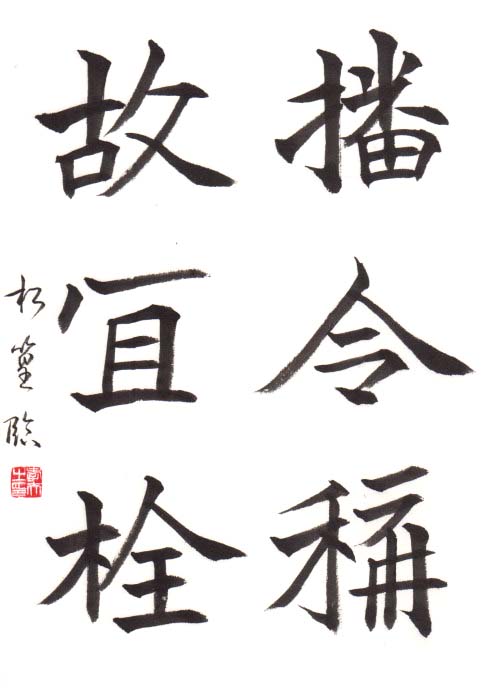 播令稱
故冝栓
松篁臨